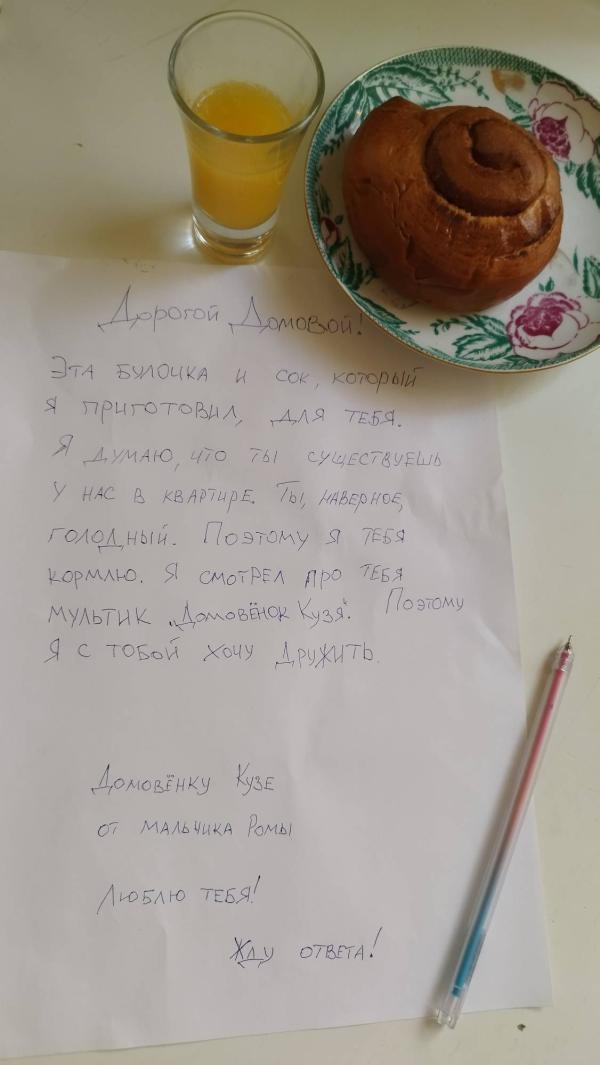 Дорогой Домовой!
Эта булочка и сок, который
я приготовил, для тебя.
Я думаю, что ты существуешь
у нас в квартире. Ты, наверное,
голодный. Поэтому я тебя
кормлю. Я смотрел про тебя
мультик „Домовёнок Кузя". Поэтому
я с тобой хочу дружить.
Домовёнку Кузе
от мальчика Ромы
Люблю тебя!
Жду ответа!